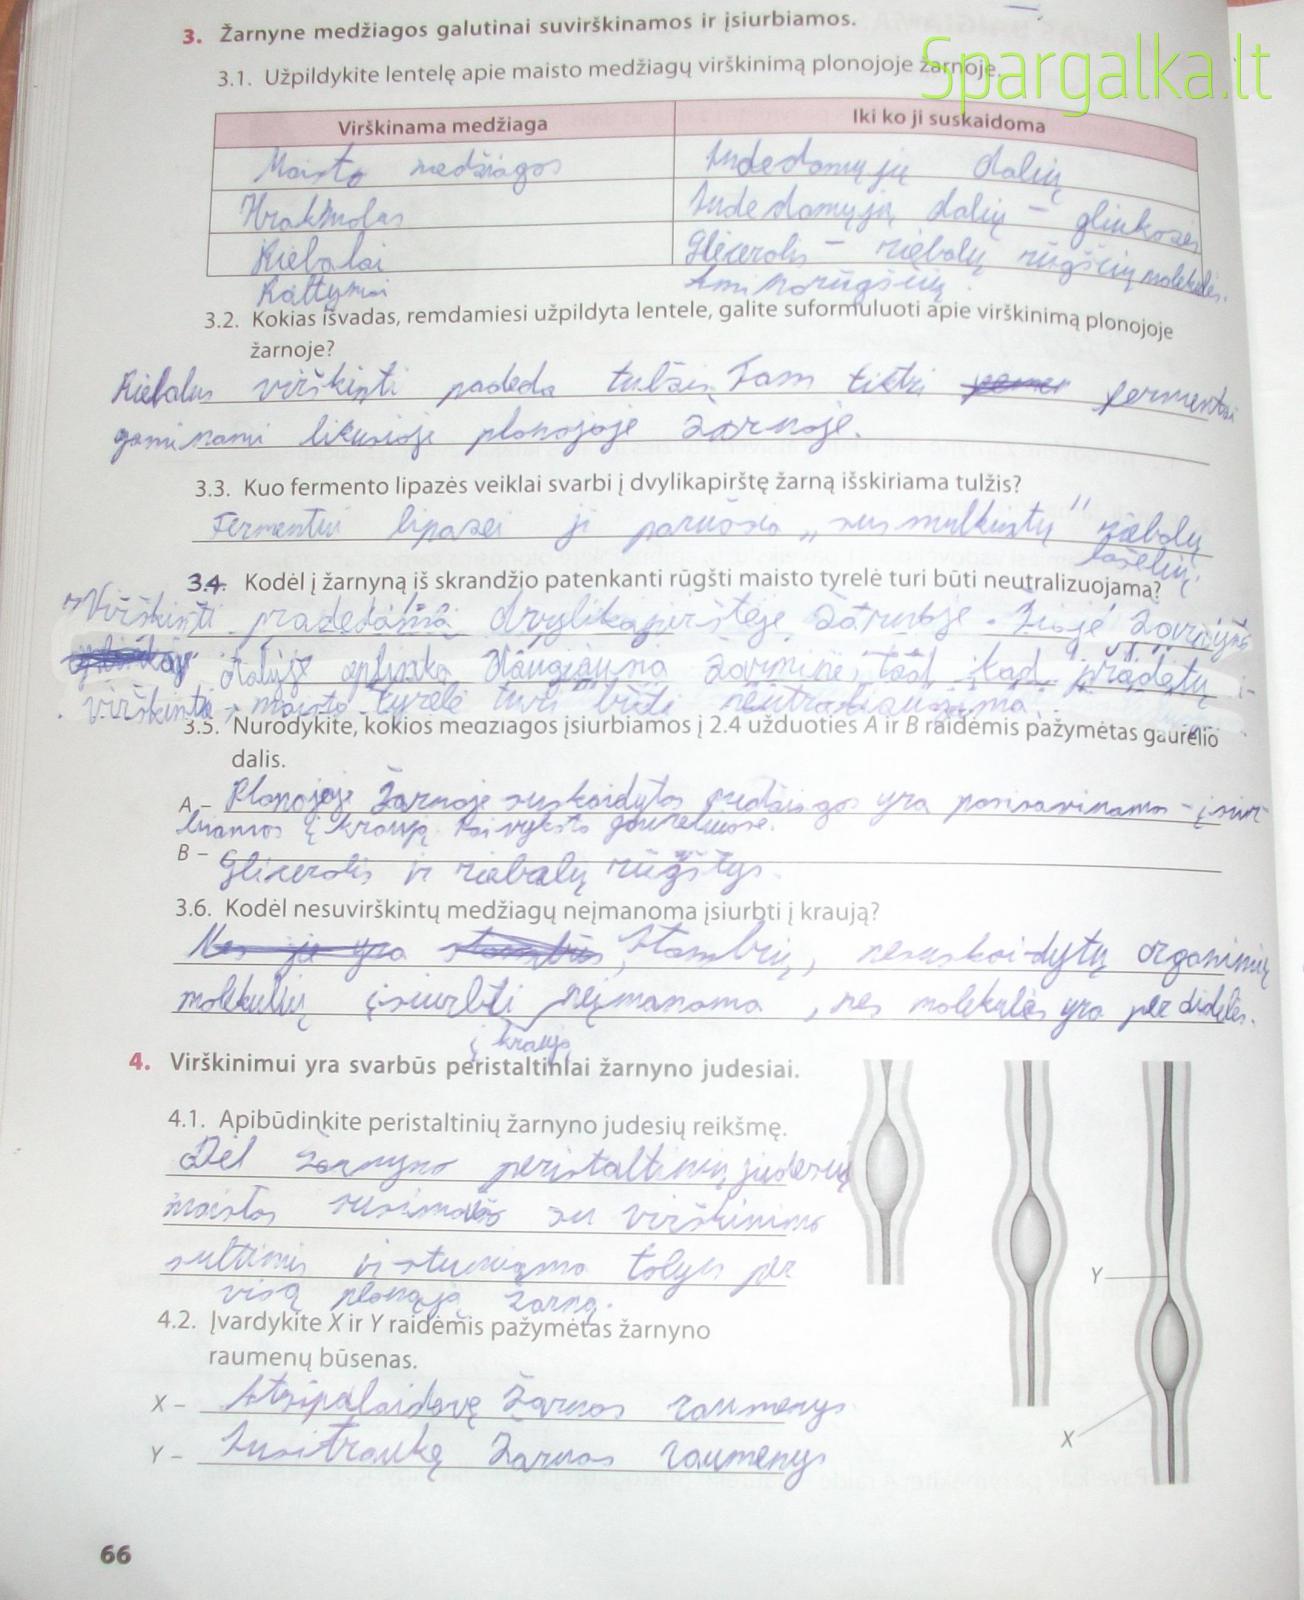 3. Žarnyne medžiagos galutinai suvirškinamos ir įsiurbiamos.
Spargalka.lt
3.1. Užpildykite lentelę apie maisto medžiagų virškinimą plonojoje žarnoje.
Virškinama medžiaga Iki ko ji suskaidoma
Maisto medžiagos Sudedamųjų dalių
Krakmolas Sudedamųjų dalių – gliukozės
Riebalai Glicerolis – riebalų rūgščių molekulės.
Baltymai Aminorūgščių.
3.2. Kokias išvadas, remdamiesi užpildyta lentele, galite suformuluoti apie virškinimą plonojoje
žarnoje?
Riebalus virškinti padeda tulžis. Tam tikri fermentai
gaminami likusioje plonojoje žarnoje.
3.3. Kuo fermento lipazės veiklai svarbi į dvylikapirštę žarną išskiriama tulžis?
Fermentui lipazei ji paruošia „susmulkintų" riebalų
lašelių.
3.4. Kodėl į žarnyną iš skrandžio patenkanti rūgšti maisto tyrelė turi būti neutralizuojama?
Virškinti pradedama dvylikapirštėje žarnoje. Šioje žarnyno
dalyje aplinka šarminė, tad kad pradėtų
virškinti, maisto tyrelė turi būti neutralizuojama.
3.5. Nurodykite, kokios medžiagos įsiurbiamos į 2.4 užduoties A ir B raidėmis pažymėtas gaurelio
dalis.
A – Plonojoje žarnoje suskaidytos medžiagos yra pasisavinamos – įsiur-
biamos į kraują. Tai vyksta gaureliuose.
B – Glicerolis ir riebalų rūgštys.
3.6. Kodėl nesuvirškintų medžiagų neįmanoma įsiurbti į kraują?
Nes jie yra Stambių, nesuskaidytų organinių
molekulių įsiurbti neįmanoma, nes molekulės yra per didelės.
į kraują
4. Virškinimui yra svarbūs peristaltiniai žarnyno judesiai.
4.1. Apibūdinkite peristaltinių žarnyno judesių reikšmę.
Dėl žarnyno peristaltinių judesių
maistas susimaišo su virškinimo
sultimis ir stumiamas tolyn per
visą plonąją žarną.
4.2. Įvardykite X ir Y raidėmis pažymėtas žarnyno
raumenų būsenas.
X – Atsipalaidavę žarnos raumenys
Y – Susitraukę žarnos raumenys
Y
X
66